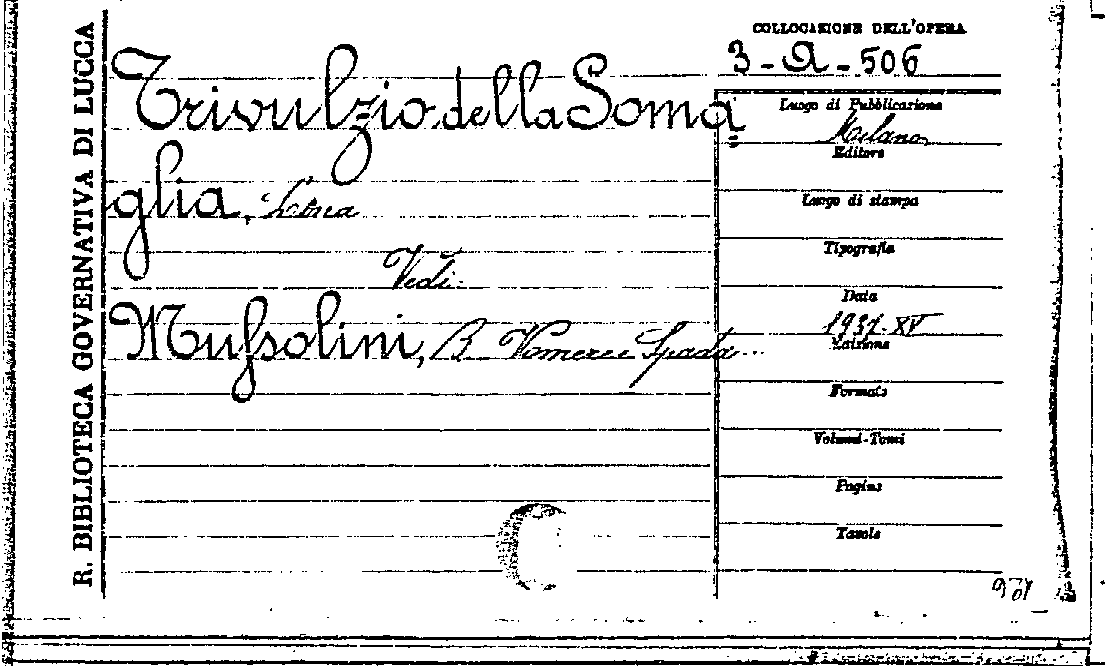 R. BIBLIOTECA GOVERNATIVA DI LUCCA
COLLOCAZIONE DELL'OPERA
3-A-506
Trivulzio della Soma
glia,
Vedi
Mussolini, B Vomere e Spada...
Luogo di Pubblicazione
Milano
Editore
Luogo di stampa
Tipografia
Data
XV
Edizione
Formato
Volumi-Tomi
Pagine
Tavole